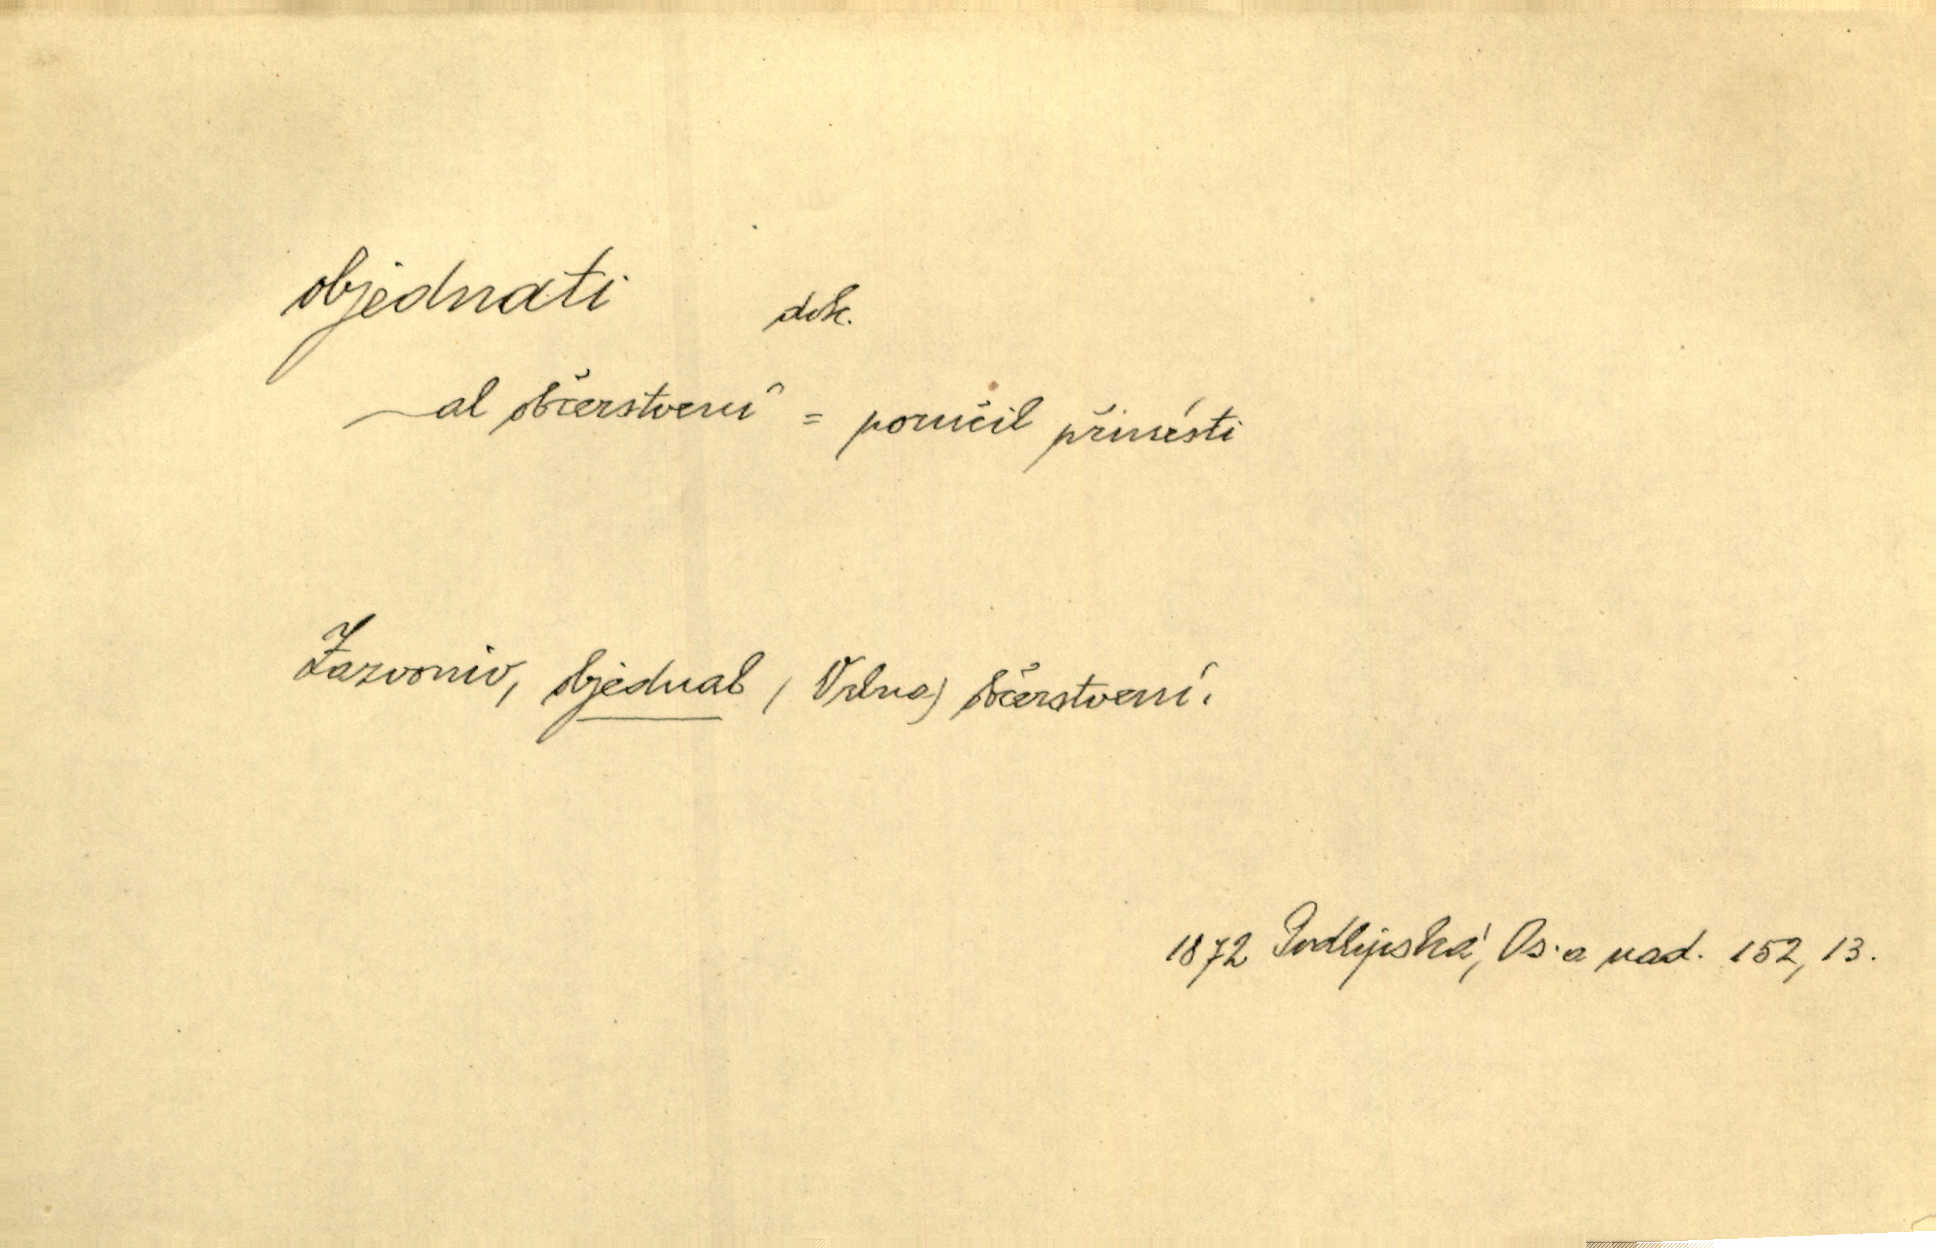 objednati dok.
—al občerstvení = poručil přinésti
Zazvoniv, objednal (Vrlna) občerstvení.
1872 Podlipská, Os. a nad. 152, 13.